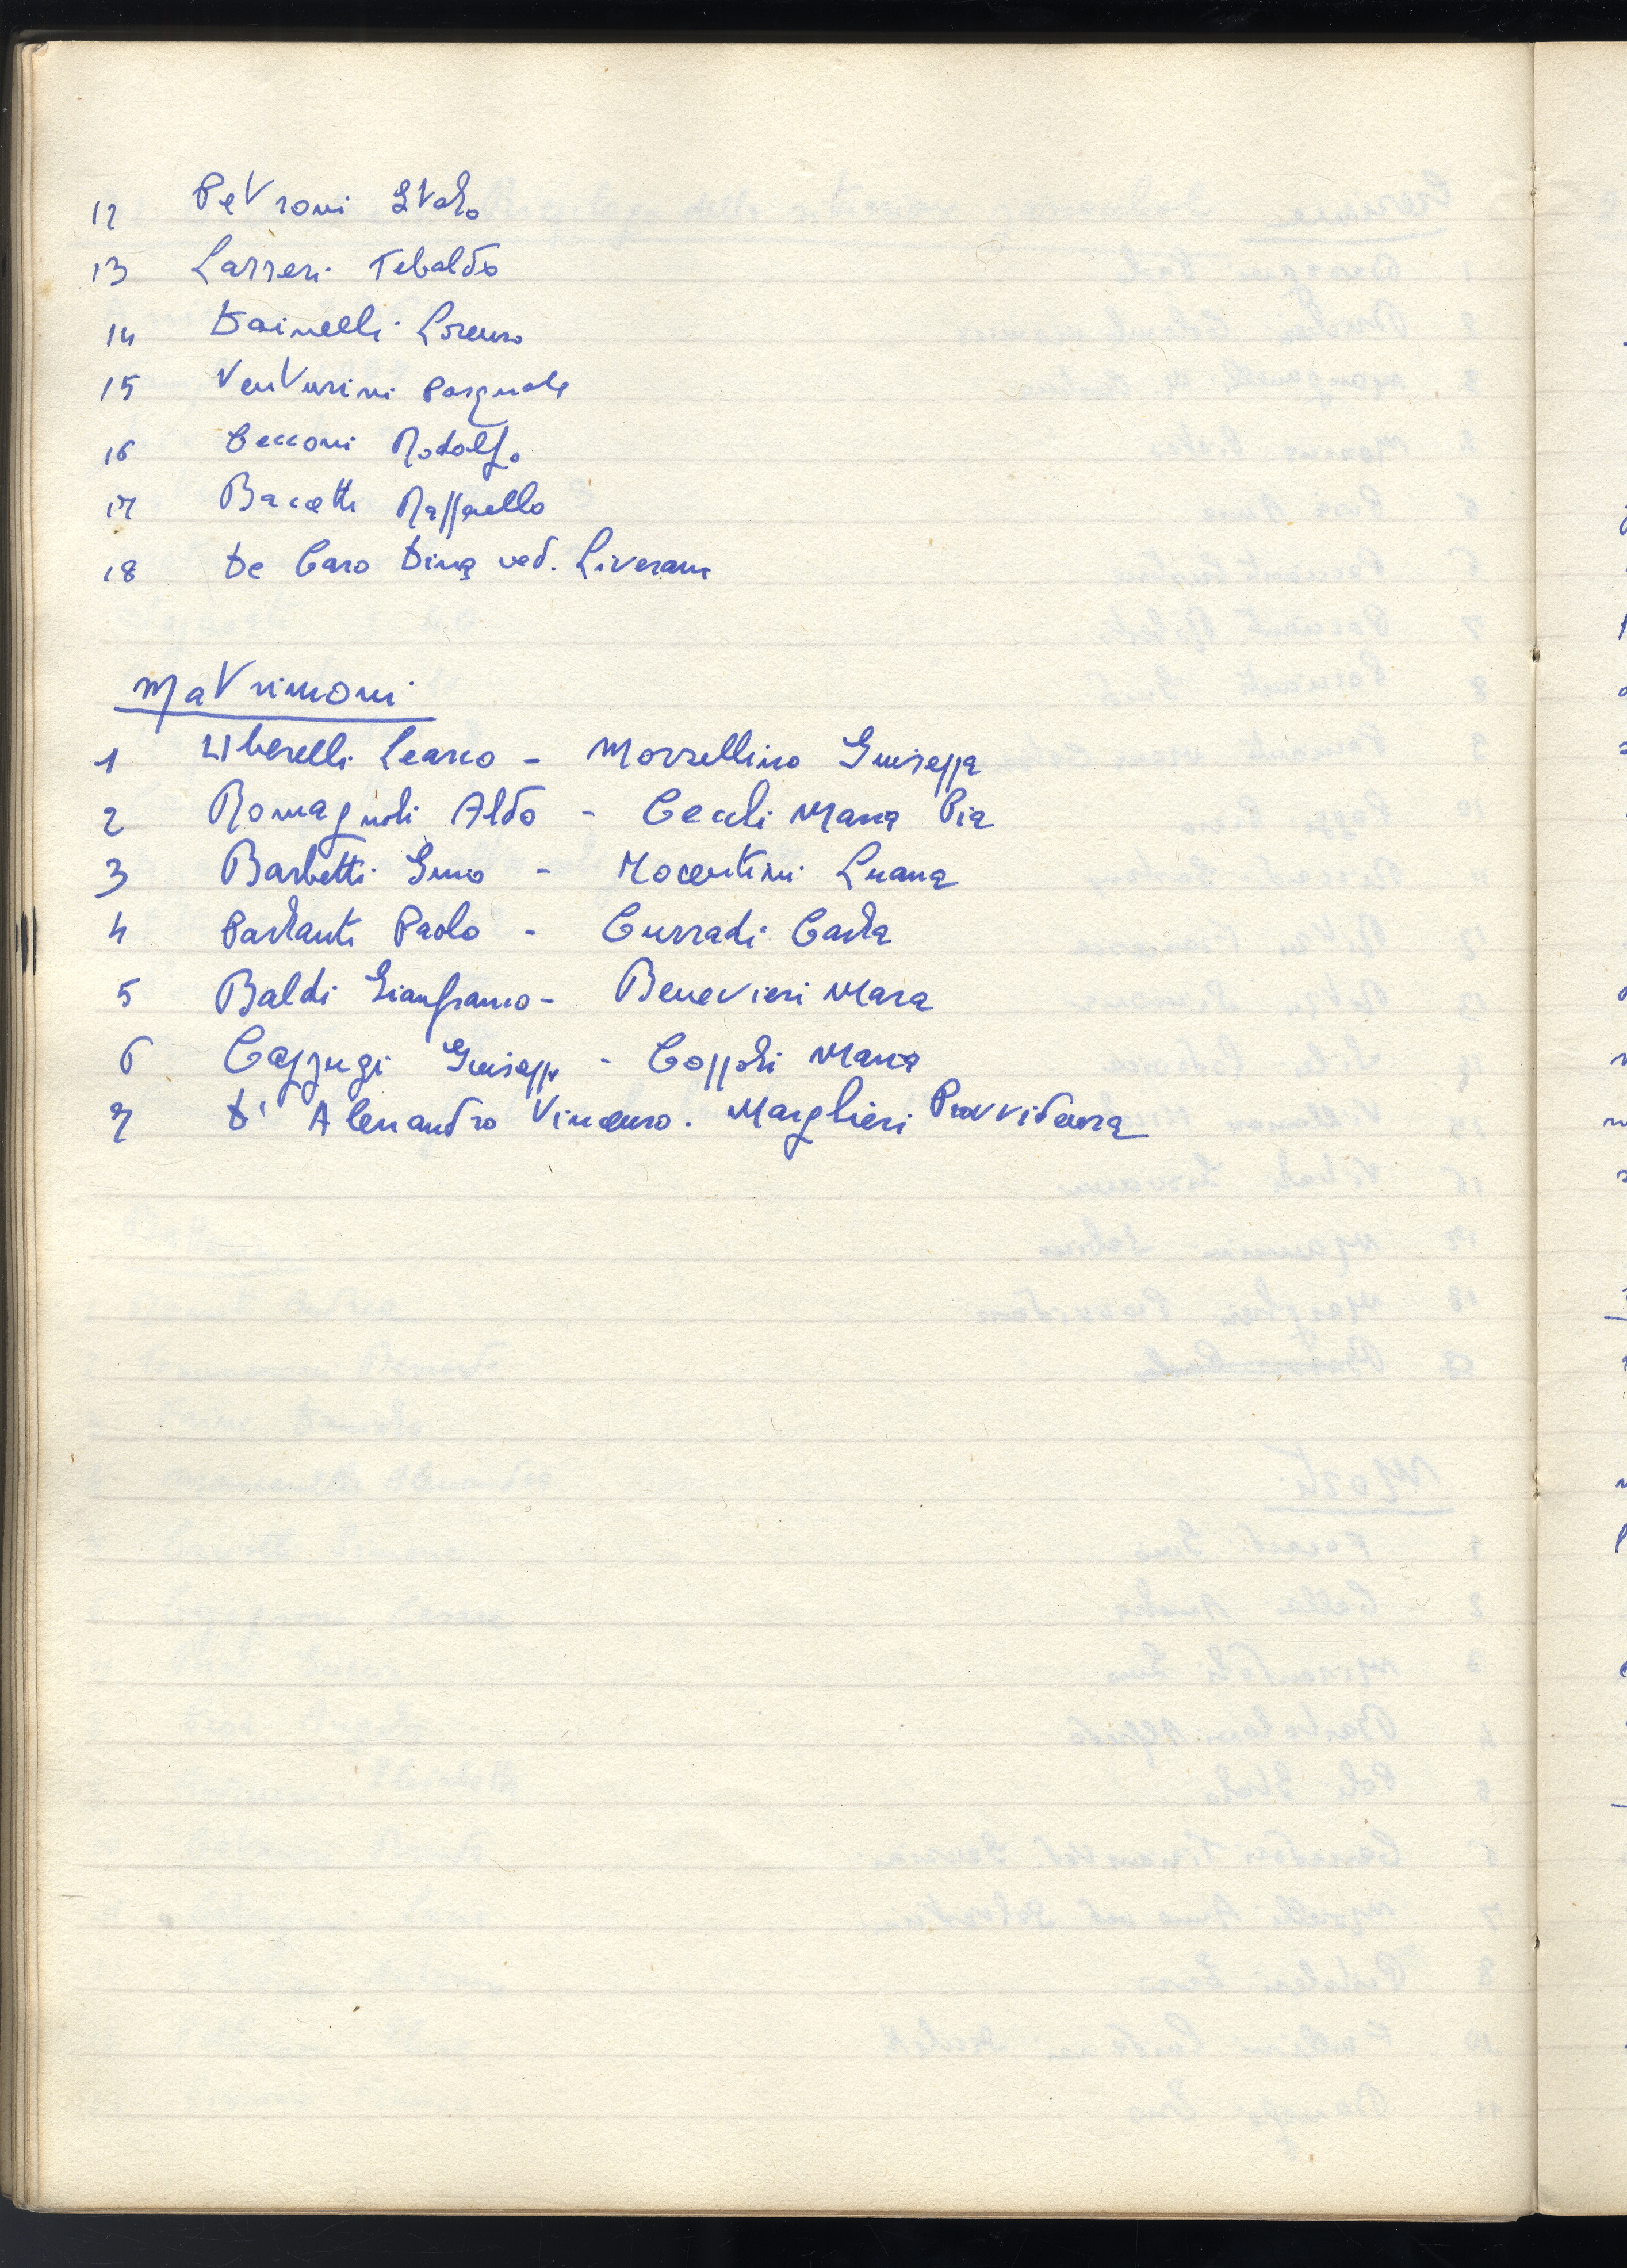 12 Petroni Italo
13 Lazzeri Tebaldo
14 Dainelli Lorenzo
15 Venturini Pasquale
16 Cecconi Rodolfo
17 Bacetti Raffaello
18 De Caro Dina ved. Liverani
Matrimoni
1 Uberelli Learco - Mozzellino Giuseppa
2 Romagnoli Aldo - Cecchi Maria Pia
3 Barbetti Gino - Nocentini Luana
4 Parlanti Paolo - Curradi Carla
5 Baldi Gianfranco - Benevieri Mara
6 Capzugi Giuseppe - Coppoli Maria
7 D'Alessandro Vincenzo. Marglieri Provvidenza